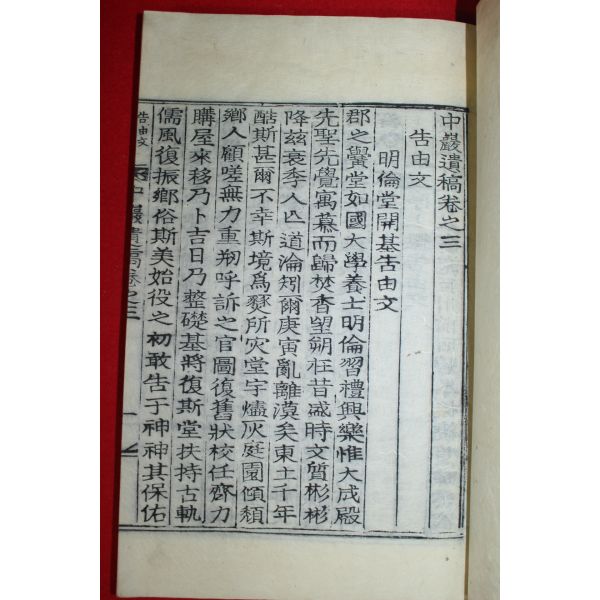 中巖遺稿卷之三
告由文
明倫堂開基告由文
郡之黌堂如國大學養士明倫習禮興樂惟大成殿
先聖先覺寓慕而歸焚香望朔在昔盛時文質彬彬
降玆衰季人亡道淪矧爾庚寅亂離漠矣東土千年
酷斯甚爾不幸斯境爲燹所灾堂宇燼灰庭園傾頹
鄕人顧嗟無力重刱呼訴之官圖復舊狀校任齊力
購屋來移乃卜吉日乃整礎基將復斯堂扶持古軌
儒風復振鄕俗斯美始役之初敢告于神神其保佑
告由文 中巖遺稿卷之三 一